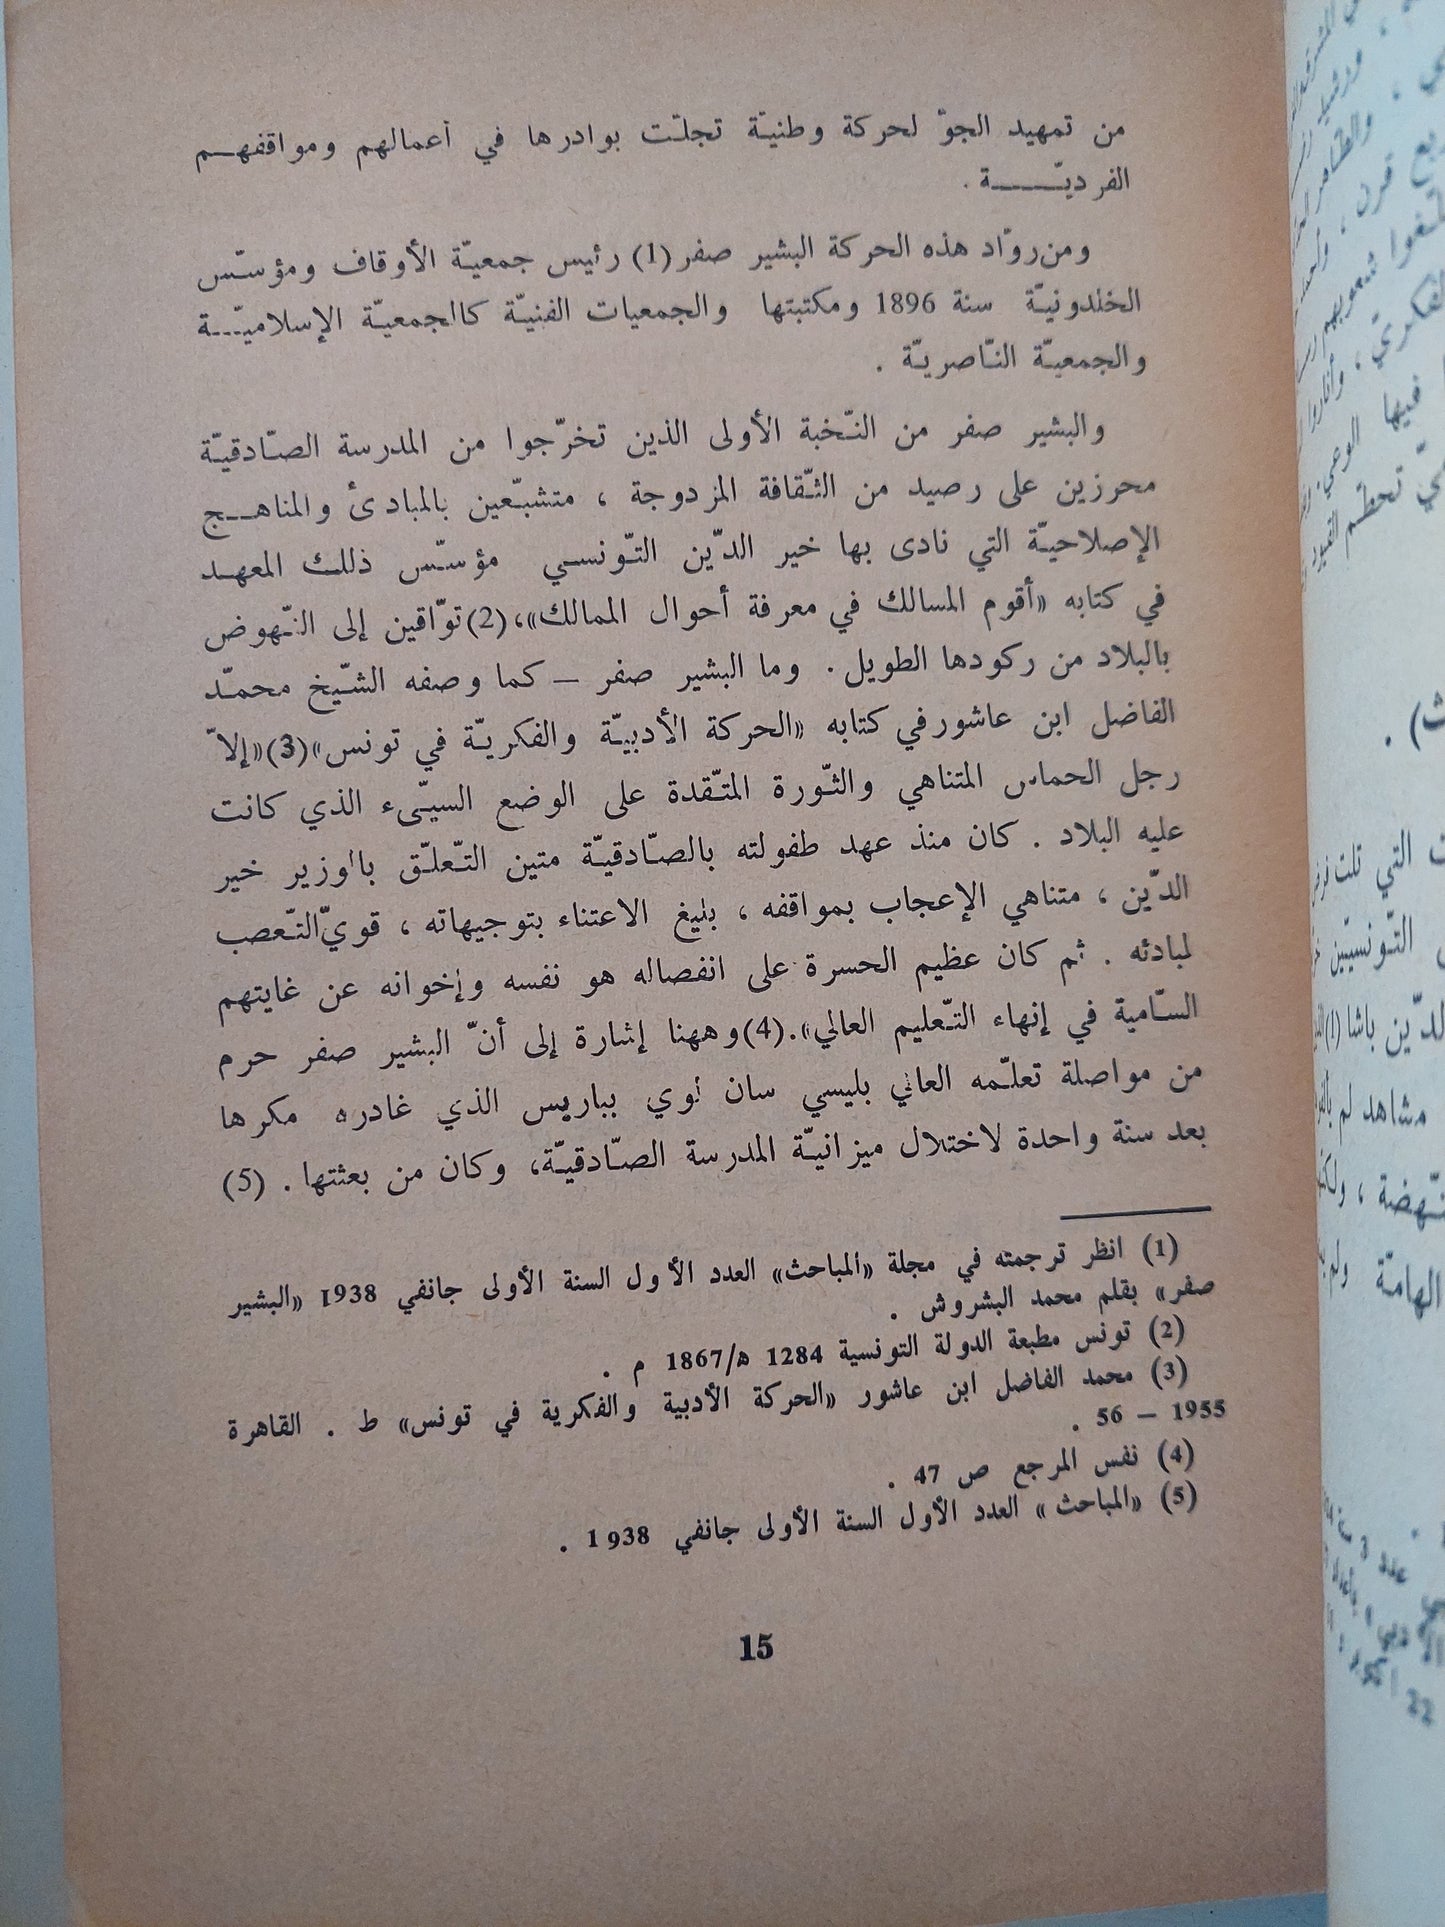 من تمهيد الجوّ لحركة وطنيّة تجلّت بوادرها في أعمالهم ومواقفهـــم
الفرديّـــــــة .
ومن روّاد هذه الحركة البشير صفر (1) رئيس جمعيّة الأوقاف ومؤسّس
الخلدونيّة سنة 1896 ومكتبتها والجمعيات الفنيّة كالجمعيّة الإسلاميّـــة
والجمعيّة النّاصريّة .
والبشير صفر من النّخبة الأولى الذين تخرّجوا من المدرسة الصّادقيّة
محرزين على رصيد من الثّقافة المزدوجة ، متشبّعين بالمبادئ والمناهــج
الإصلاحيّة التي نادى بها خير الدّين التّونسـي مؤسّس ذلـك المعهـد
في كتابه «أقوم المسالك في معرفة أحوال الممالك»، (2) توّاقين إلى النّهوض
بالبلاد من ركودها الطويل . وما البشير صفر – كما وصفه الشّيخ محمّد
الفاضل ابن عاشور في كتابه «الحركة الأدبيّة والفكريّة في تونس» (3) «إلاّ
رجل الحماس المتناهي والثّورة المتّقدة على الوضع السيّىء الذي كانت
عليه البلاد . كان منذ عهد طفولته بالصّادقيّة متين التّعلّق بالوزير خير
الدّين ، متناهي الإعجاب بمواقفه ، بليغ الاعتناء بتوجيهاته ، قويّ التّعصب
لمبادئه . ثم كان عظيم الحسرة على انفصاله هو نفسه وإخوانه عن غايتهم
السّامية في إنهاء التّعليم العالي». (4) وههنا إشارة إلى أنّ البشير صفر حرم
من مواصلة تعلّمه العالي بليسي سان لوي بباريس الذي غادره مكرها
بعد سنة واحدة لاختلال ميزانيّة المدرسة الصّادقيّة، وكان من بعثتها . (5)
(1) انظر ترجمته في مجلة «المباحث» العدد الأول السنة الأولى جانفي 1938 «البشير
صفر» بقلم محمد البشروش .
(2) تونس مطبعة الدولة التونسية 1284 ه/1867 م .
(3) محمد الفاضل ابن عاشور «الحركة الأدبية والفكرية في تونس» ط . القاهرة
1955 – 56 .
(4) نفس المرجع ص 47 .
(5) «المباحث» العدد الأول السنة الأولى جانفي 1938 .
15